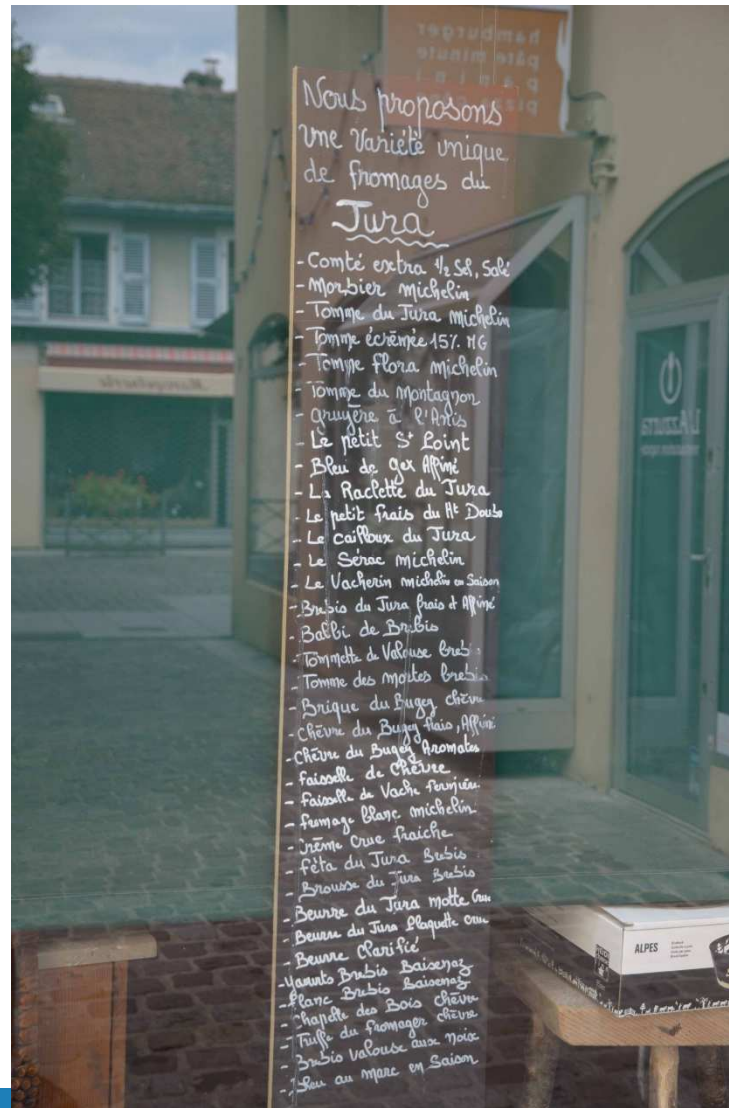 hamburger
pâte minute
panini
pizza
Nous proposons
une variété unique
de fromages du
Jura
- Comté extra 1/2 Sel, Salé
- Morbier michelin
- Tomme du Jura michelin
- Tomme écrémée 15% MG
- Tomme flora michelin
- Tomme du montagnon
- gruyère à l'Anis
- Le petit St Loint
- Bleu de gex Affiné
- La Raclette du Jura
- Le petit frais du Ht Doubs
- Le cailloux du Jura
- Le Sérac michelin
- Le Vacherin michelin en Saison
- Brebis du Jura frais et Affiné
- Balbi de Brebis
- Tommette de Valouse breb
- Tomme des moites brebis
- Brique du Bugey chèvre
- Chèvre du Bugey frais, Affiné
- Chèvre du Bugey Aromates
- faisselle de Chèvre
- faisselle de Vache fermière
- fromage blanc michelin
- Crème crue fraiche
- féta du Jura Brebis
- Brousse du Jura Brebis
- Beurre du Jura motte Crue
- Beurre du Jura Plaquette crue
- Beurre Clarifié
- Yaourts Brebis Baisenaz
- Blanc Brebis Baisenaz
- Chapelle des Bois Chèvre
- Truffe du fromager chèvre
- Brebis Valouse aux noix
- Bleu au marc en Saison
L'AZZURRA
ALPES